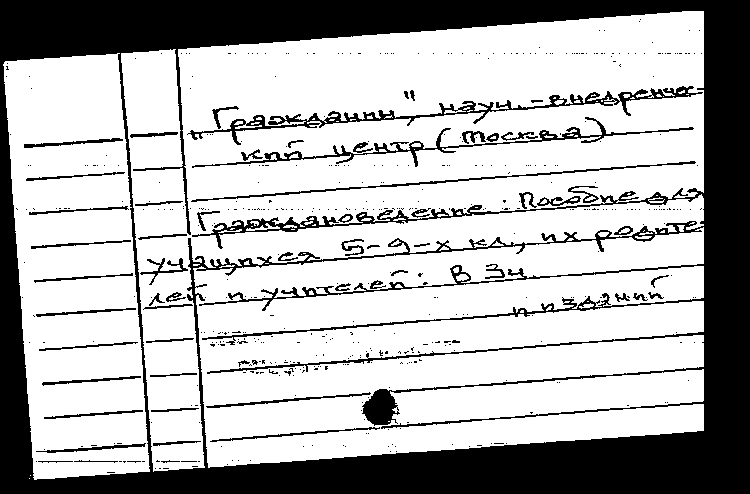 „Гражданин", науч.-внедренчес-
кий центр (Москва)
Граждановедение: Пособие для
учащихся 5-9-х кл., их родите-
лей и учителей: В 3ч.
п изданий